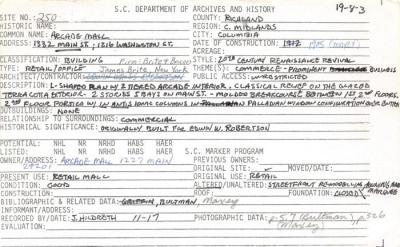 S.C. DEPARTMENT OF ARCHIVES AND HISTORY 19-8-3
SITE NO.: 250 COUNTY: RICHLAND
HISTORIC NAME: REGION: C. MIDLANDS
COMMON NAME: ARCADE MALL CITY: COLUMBIA
ADDRESS: 1332 MAIN ST., 1216 WASHINGTON ST. DATE: 1912
ACREAGE:
CLASSIFICATION: BUILDING STYLE: 20TH CENTURY RENAISSANCE REVIVAL
TYPE: RETAIL/OFFICE THEME(S): COMMERCE - PROMINENT BUSINESS
ARCHITECT/CONTRACTOR: James Brite, New York PUBLIC ACCESS: UNRESTRICTED
DESCRIPTION: L-SHAPED PLAN W/ 2 TIERED ARCADE INTERIOR. CLASSICAL RELIEF ON THE GLAZED
TERRA COTTA EXTERIOR. 2 STORIES 5 BAYS ON MAIN ST. - MOLDED BEADCOURSE BETWEEN 1st, 2nd FLOORS.
2nd FLOOR PORTICO W/ IN ANTIS IONIC COLUMNS IN PALLADIAN WINDOW CONFIGURATION
OUTBUILDINGS: NONE
RELATIONSHIP TO SURROUNDINGS: COMMERCIAL
HISTORICAL SIGNIFICANCE: ORIGINALLY BUILT FOR EDWIN W. ROBERTSON
POTENTIAL: NHL NR NHD HABS HAER S.C. MARKER PROGRAM
CURRENT: NHL NR NHD HABS HAER PREVIOUS OWNERS:
OWNER/ADDRESS: ARCADE MALL 1227 MAIN
29201 ORIGINAL SITE: MOVED/DATE:
PRESENT USE: RETAIL MALL ORIGINAL USE: RETAIL
CONDITION: GOOD ALTERED/UNALTERED: STREETFRONT REMODELING, AWNING AND MARQUEE
CONSTRUCTION: ROOF: FOUNDATION: CLOSED
BIBLIOGRAPHIC & RELATED DATA: BULTMAN, Maxey
INFORMANT/ADDRESS:
RECORDED BY/DATE: J. HILDRETH 11-17 PHOTOGRAPHIC DATA: p. 57 (Bultman), p. 326
EVALUATION: (Maxey)